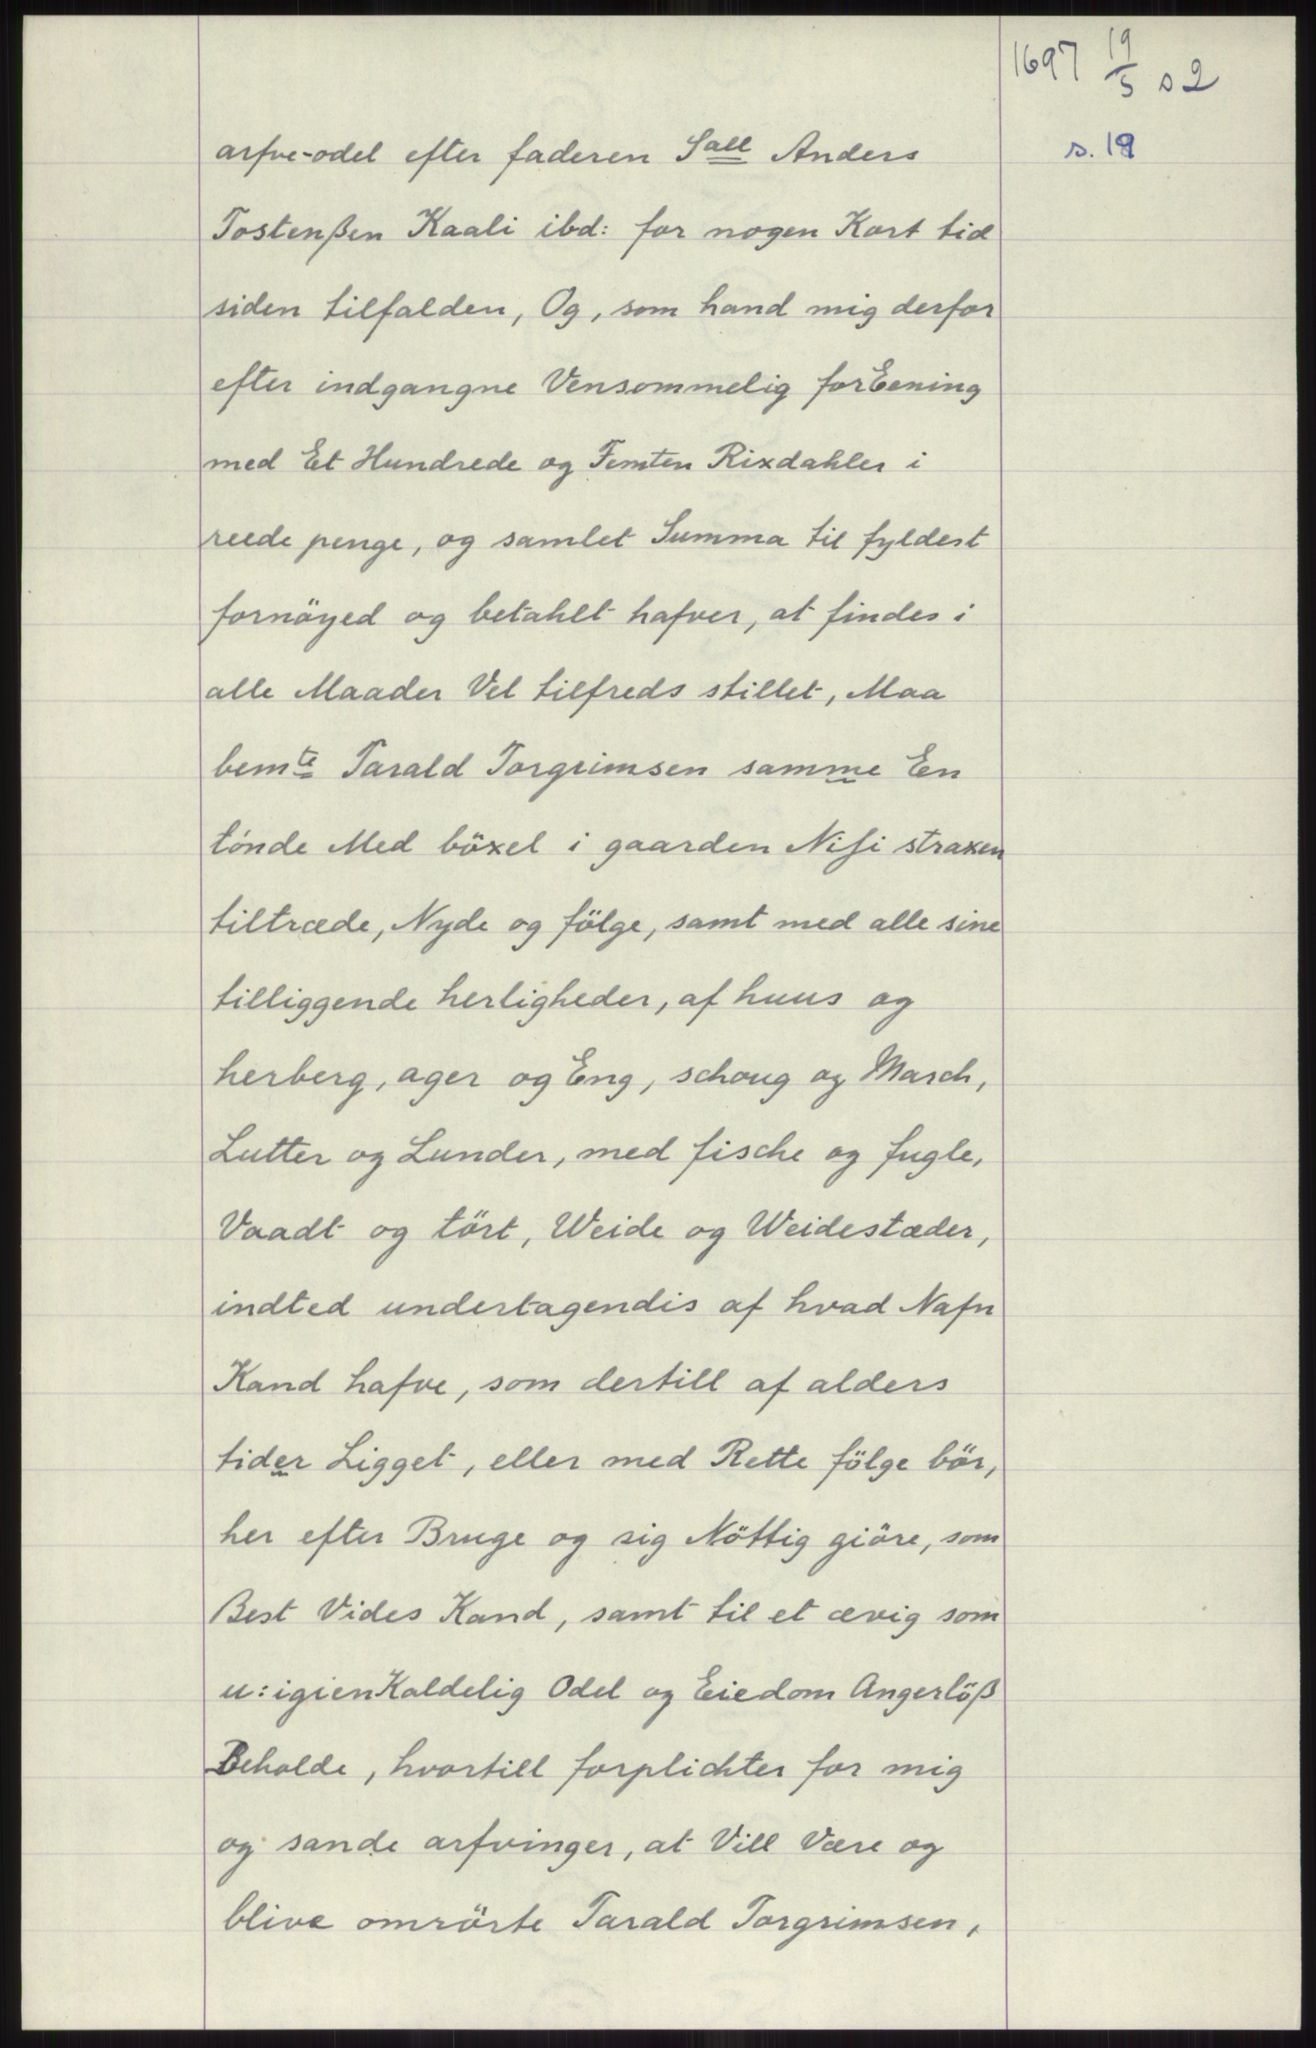 1697 19/5 s 2
s. 19
arfve-odel efter faderen Sall Anders
Tostenßen Kaali ibd: for nogen Kort tid
siden tilfalden, Og, som hand mig derfor
efter indgangne Vensommelig forEening
med Et Hundrede og Femten Rixdahler i
reede penge, og samlet Summa til fyldest
fornöyed og betahlt hafver, at findes i
alle Maader Vel tilfreds stillet, Maa
bemte Tarald Torgrimsen samme En
tönde Med böxel i gaarden Nisi straxen
tiltræde, Nyde og fölge, samt med alle sine
tilliggende herligheder, af huus og
herberg, ager og Eng, schoug og March,
Lutter og Lunder, med fische og fugle,
Vaadt og tört, Weide og Weidestæder,
indted undertagendis af hvad Nafn
Kand hafve, som dertill af alders
tider Ligget, eller med Rette fölge bör,
her efter Bruge og sig Nöttig giöre, som
Best Vides Kand, samt til et ævig som
u:igienKaldelig Odel og Eiedom Angerlöß
Beholde, hvortill forplichter for mig
og sande arfvinger, at Vill Være og
blive omrörte Tarald Torgrimsen,